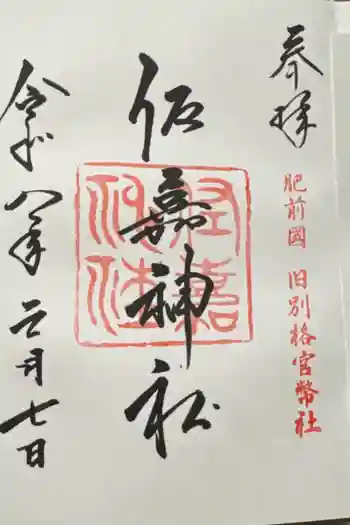 奉拝
肥前國 旧別格官幣社
佐嘉神社
佐嘉神社
令和八年二月七日